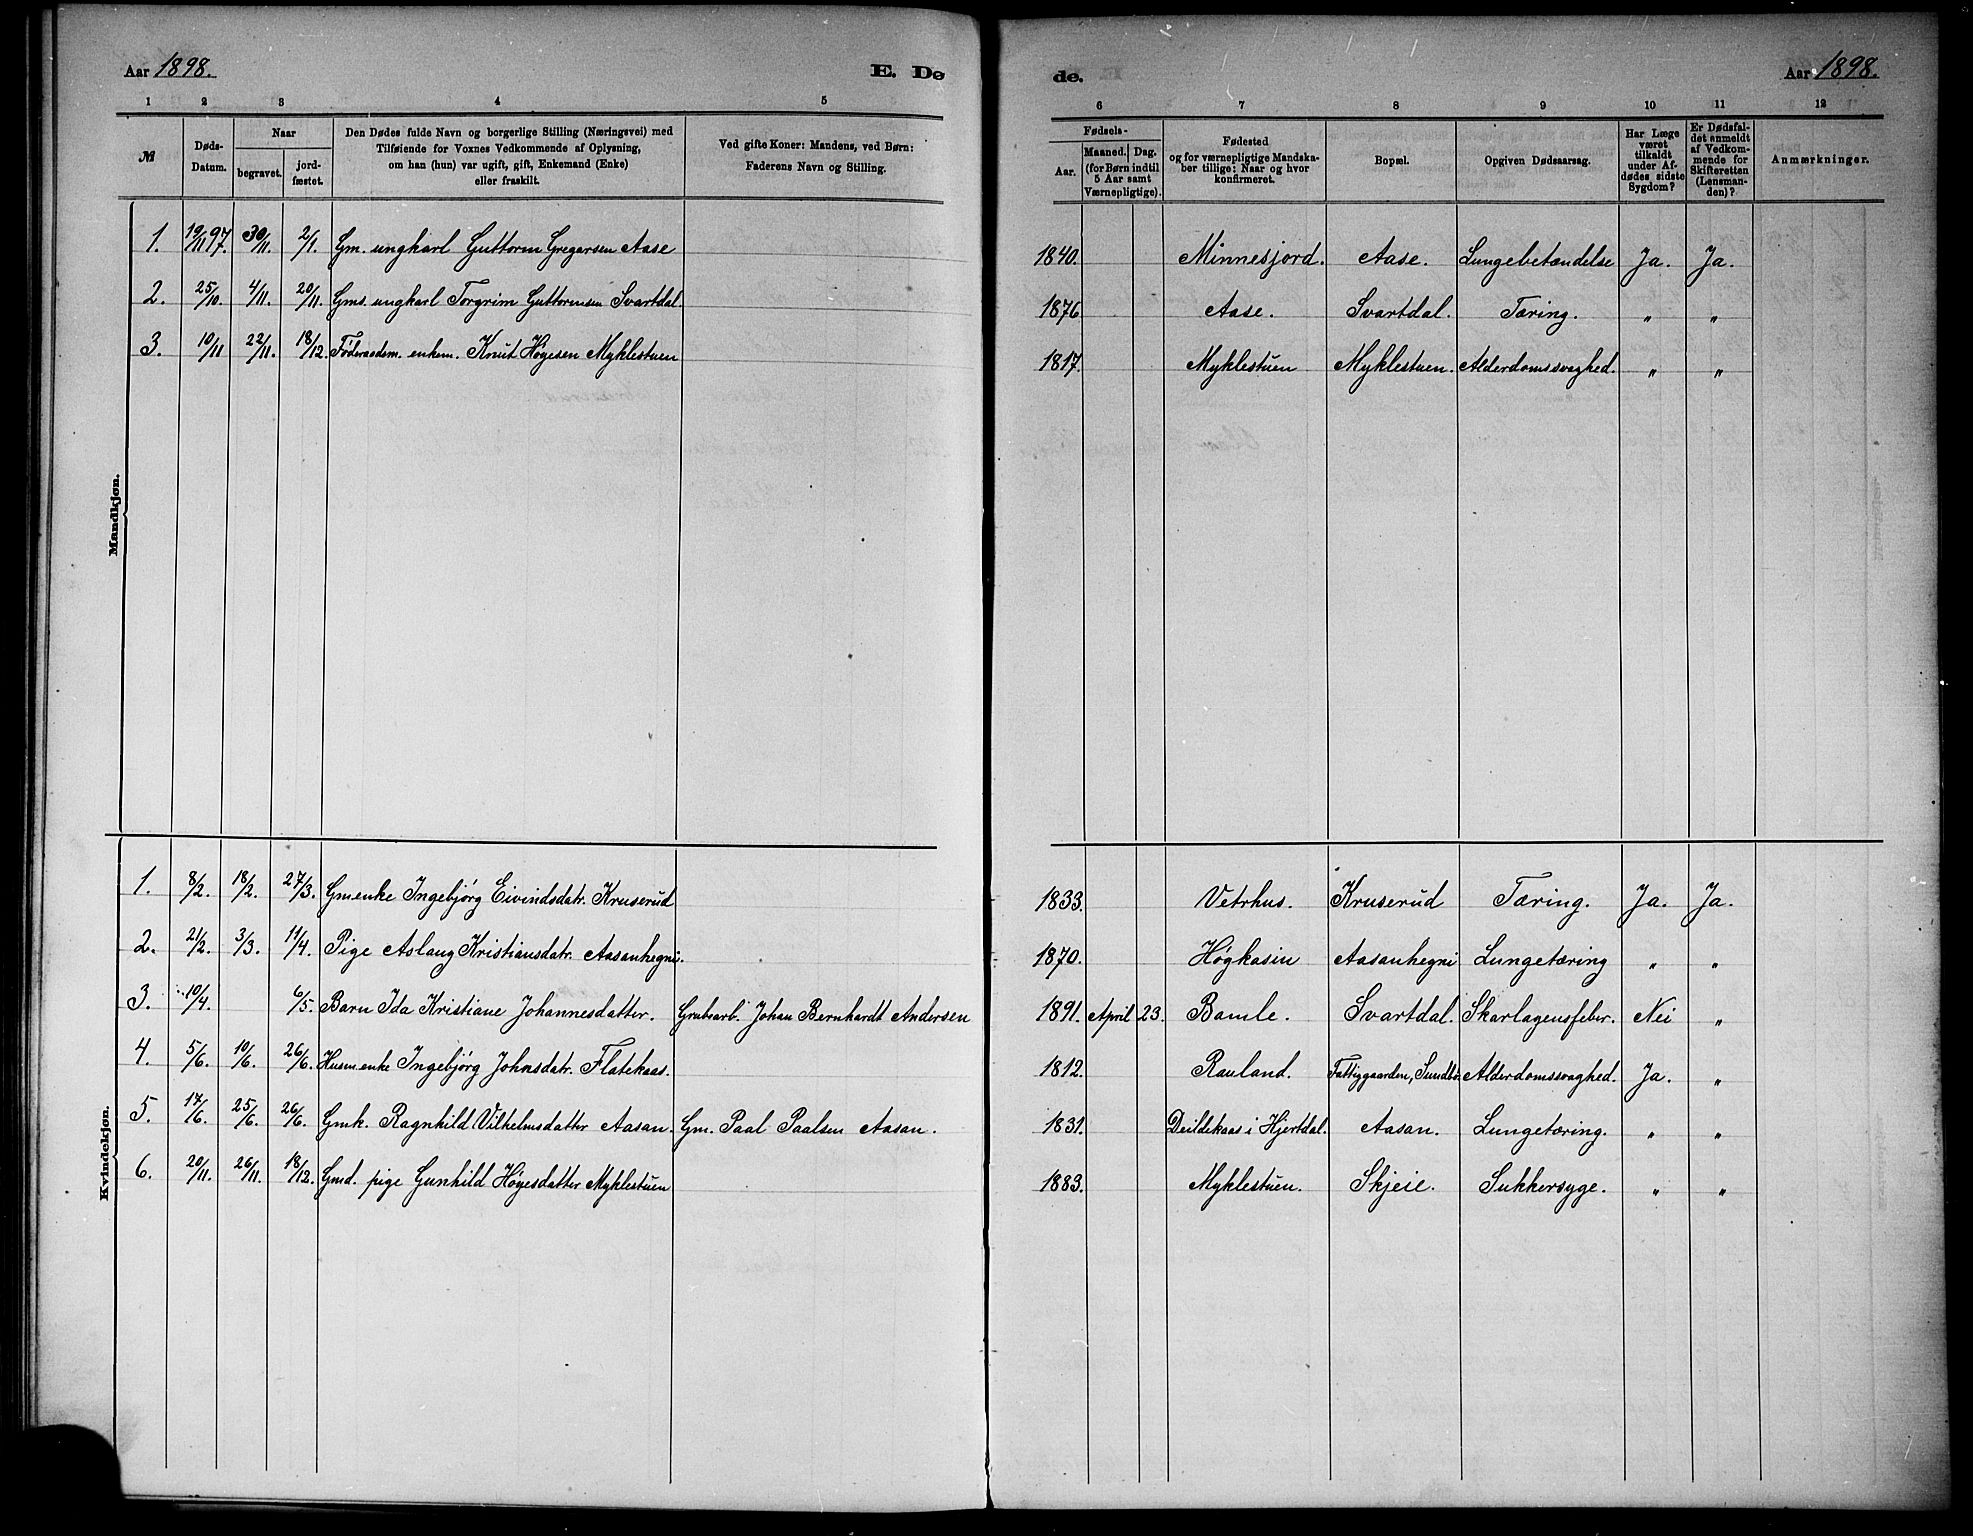 Aar 1898. E. Dø
de. Aar 1898.
1 2 3 4 5
6 7 8 9 10 11 12
№ Døds-Datum. Naar begravet. jord-fæstet. Den Dødes fulde Navn og borgerlige Stilling (Næringsvei) med Tilføiende for Voxnes Vedkommende af Oplysning, om han (hun) var ugift, gift, Enkemand (Enke) eller fraskilt. Ved gifte Koner: Mandens, ved Børn: Faderens Navn og Stilling.
Fødsels- Aar. Maaned. Dag. (for Børn indtil 5 Aar samt Værnepligtige). Fødested og for værnepligtige Mandskaber tillige: Naar og hvor konfirmeret. Bopæl. Opgiven Dødsaarsag. Har Læge været tilkaldt under Afdødes sidste Sygdom? Er Dødsfaldet anmeldt af Vedkommende for Skifteretten (Lensmanden)? Anmærkninger.
Mandkjøn.
1. 19/11 97. 30/11. 2/1. Gm. ungkarl Guttorm Gregarsen Aase 1840. Minnesjord. Aase. Lungebetændelse Ja. Ja.
2. 25/10. 4/11. 20/11. Gms. ungkarl Torgrim Guttormsen Svartdal 1876 Aase. Svartdal. Tæring. " "
3. 10/11 22/11. 18/12. Føderaadsm. enkem. Knut Høgesen Myklestuen 1817. Myklestuen Myklestuen. Alderdomssvaghed. " "
Kvindekjøn.
1. 8/2. 18/2. 27/3. Gmenke Ingebjørg Eivindsdatr. Kruserud 1833. Vetrhus. Kruserud Tæring. Ja. Ja.
2. 21/2. 3/3. 11/4. Pige Aslaug Kristiansdatr. Aasanhegni. 1870. Høgkasin Aasanhegni Lungetæring " "
3. 10/4. 6/5. Barn Ida Kristiane Johannesdatter. Grubearb. Johan Bernhardt Andersen 1891. April 23. Bamle. Svartdal. Skarlagensfeber. Nei "
4. 5/6. 10/6. 26/6. Husm.enke Ingebjørg Johnsdatr. Flatekaas. 1812. Rauland. Fattiggaarden, Sundbø. Alderdomssvaghed. Ja. "
5. 17/6. 25/6. 26/6. Gmk. Ragnhild Vilhelmsdatter Aasan. Gm. Paal Paalsen Aasan. 1831. Deildekaas i Hjertdal. Aasan. Lungetæring. " "
6. 20/11. 26/11. 18/12. Gmd. pige Gunhild Høgesdatter Myklestuen 1883. Myklestuen. Skjeie. Sukkersyge. " "